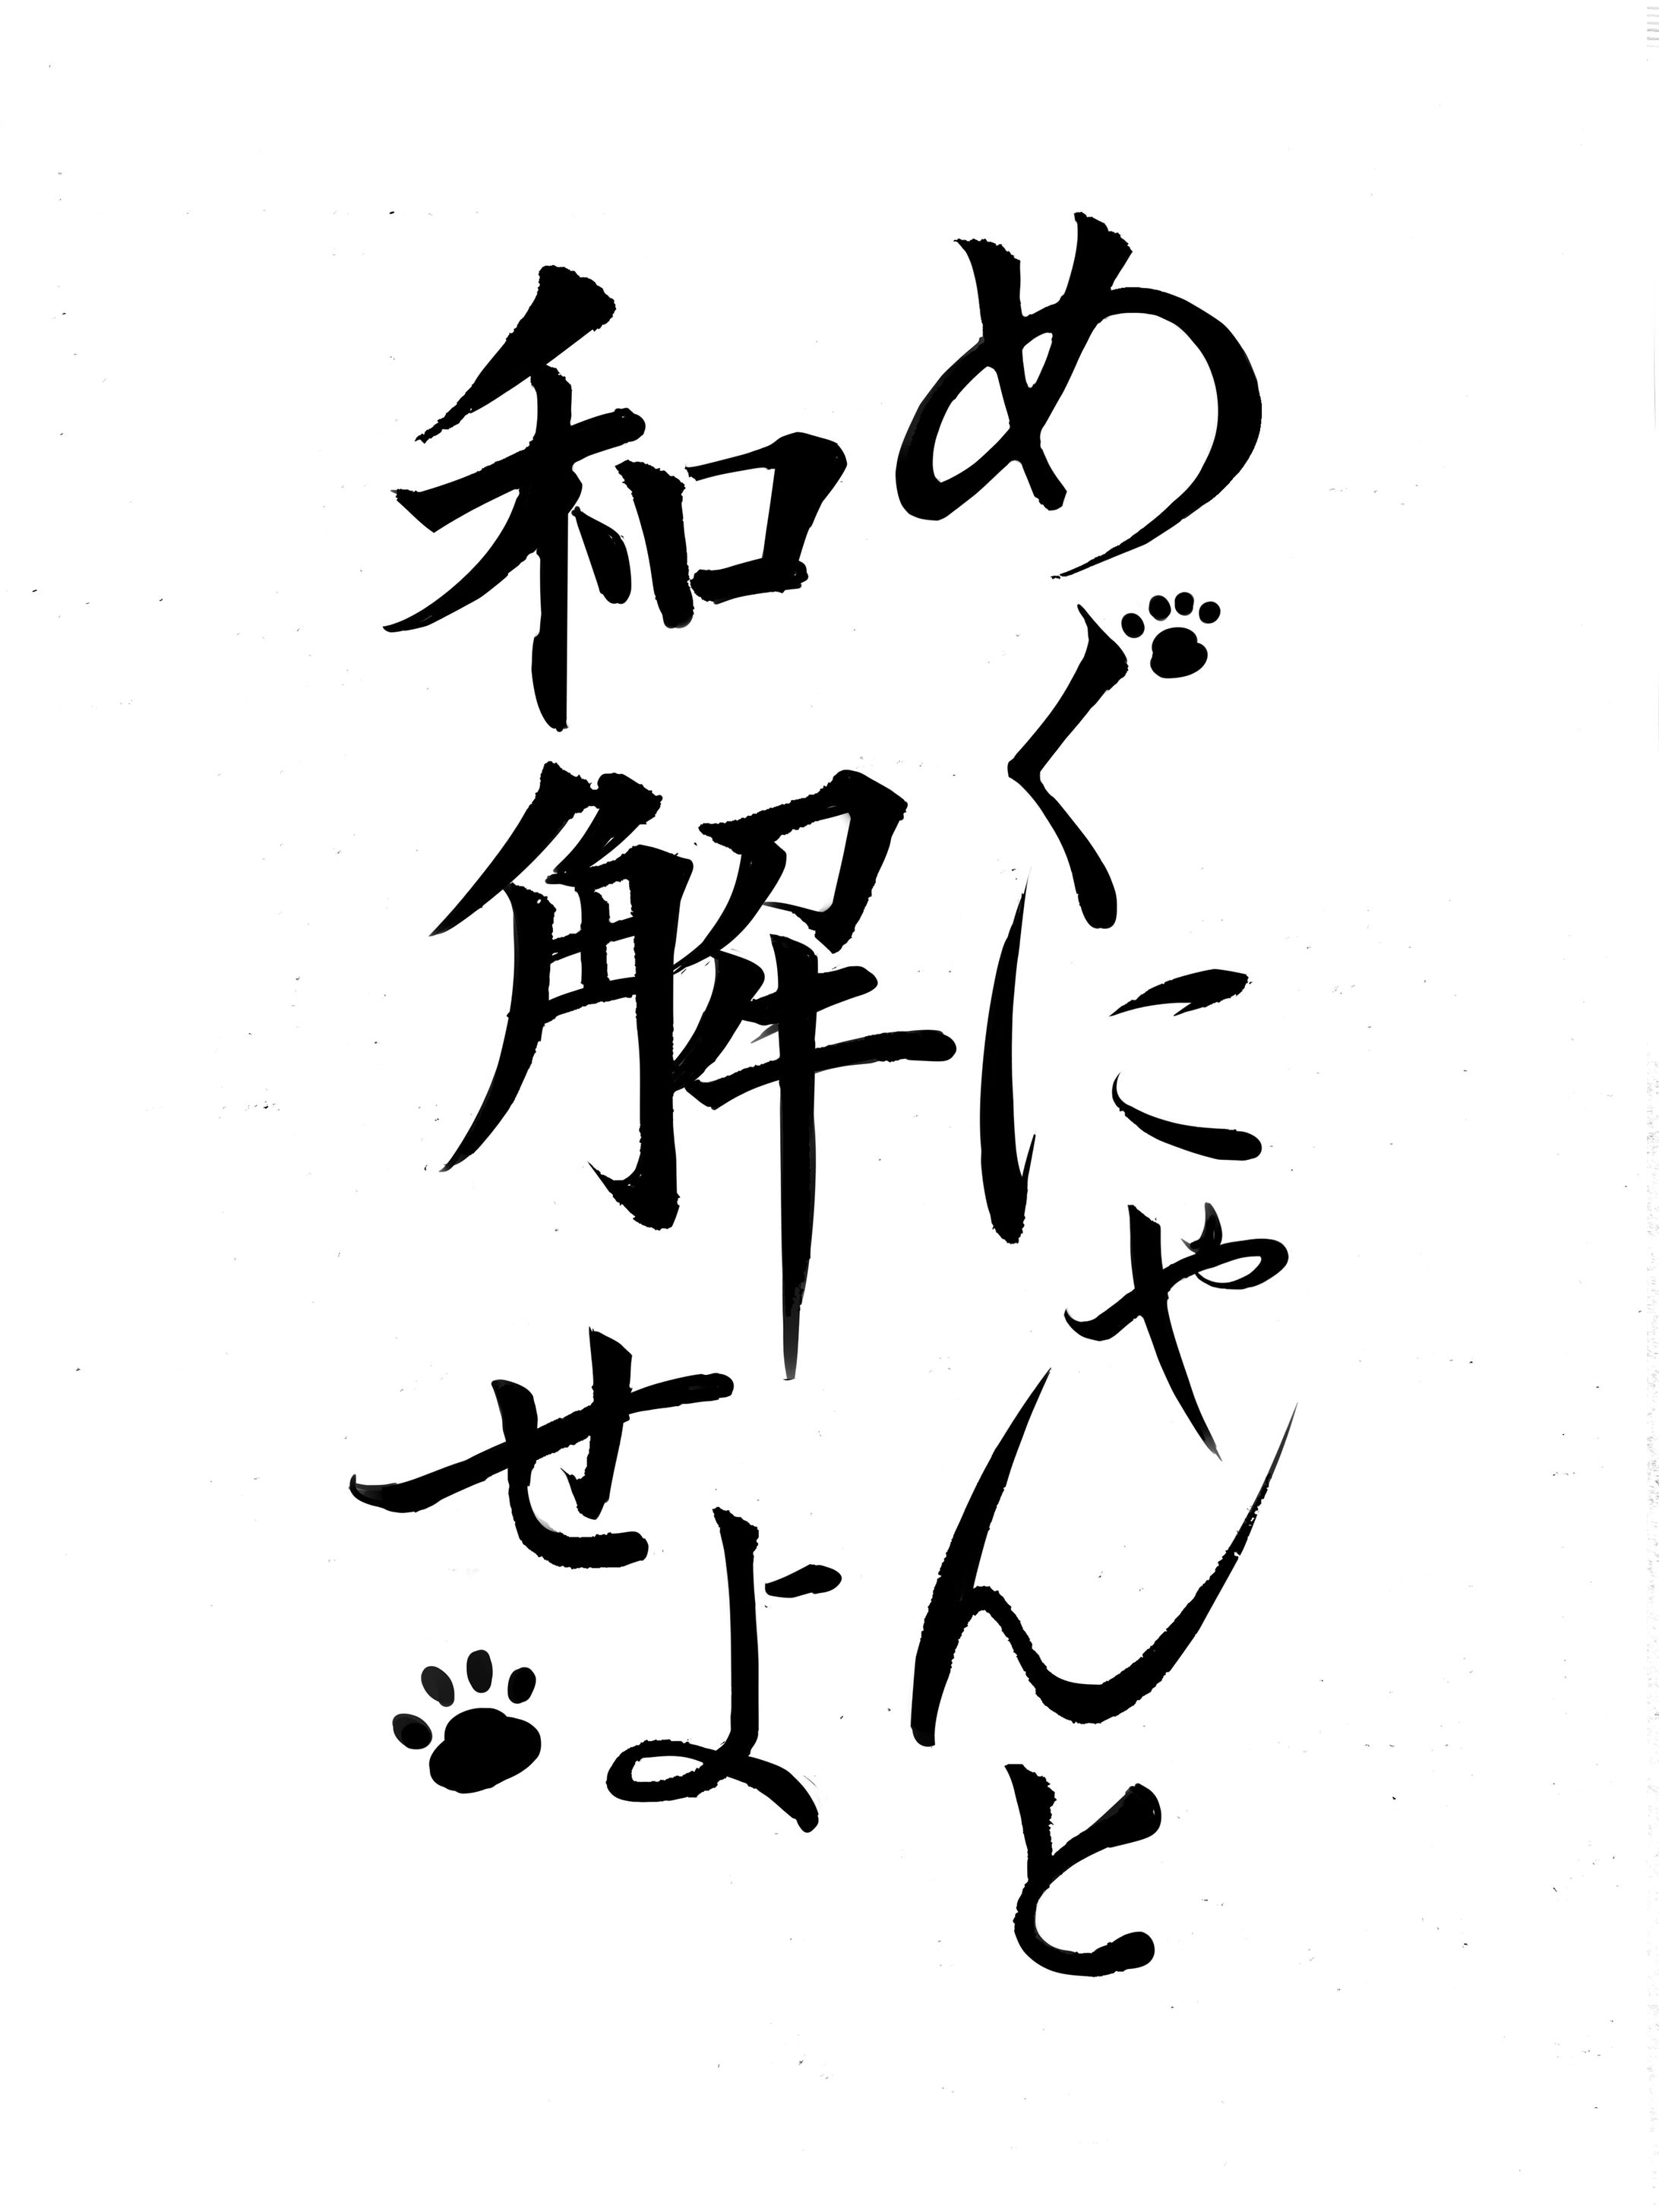 めぐにゃんと
和解せよ